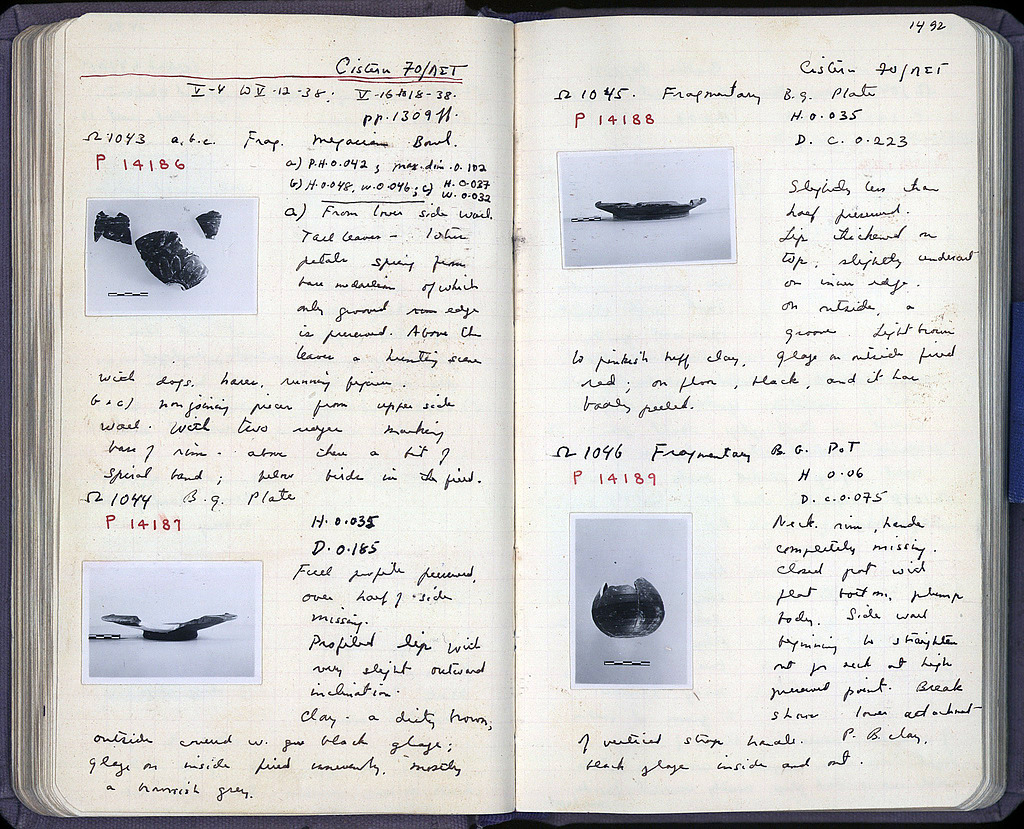 Cistern 70/ΛΣΤ
V-4 to V-12-38; V-16 to 18-38.
pp. 1309 ff.
Ω 1043 a.b.c. Frag. Megarian Bowl.
P 14186
a) P.H. 0.042; max. dim. 0.102
b) H. 0.048, W. 0.046; c) H. 0.037
W. 0.032
a) From lower side wall.
Tall leaves - lotus
petals spring from
base medallion of which
only grooved edge
is preserved. Above the
leaves a hunting scene
with dogs, hares, running figures.
b + c) non joining pieces from upper side
wall. With two ridges marking
base of rim. above them a bit of
spiral band; below birds in the field.
Ω 1044 B.g. Plate
P 14187
H. 0.035
D. 0.185
Full profile preserved,
over half of side
missing.
Profiled lip with
very slight outward
inclination.
Clay - a dirty brown;
outside covered w. good black glaze;
glaze on inside fired unevenly, mostly
a brownish grey.
1492
Cistern 70/ΛΣΤ
Ω 1045. Fragmentary B.g. Plate
P 14188
H. 0.035
D. C. 0.223
Slightly less than
half preserved.
Lip thickened on
top, slightly undercut
on inner edge.
On outside, a
groove. Light brown
to pinkish buff clay, glaze on outside fired
red; on floor, black, and it has
badly peeled.
Ω 1046 Fragmentary B.G. Pot
P 14189
H 0.06
D. c. 0.075
Neck, rim, handle
completely missing.
Closed pot with
flat bottom, plump
body. Side wall
beginning to straighten
out for neck at high
preserved point. Break
shows lower attachment
of vertical strap handle. P. B. clay,
black glaze inside and out.